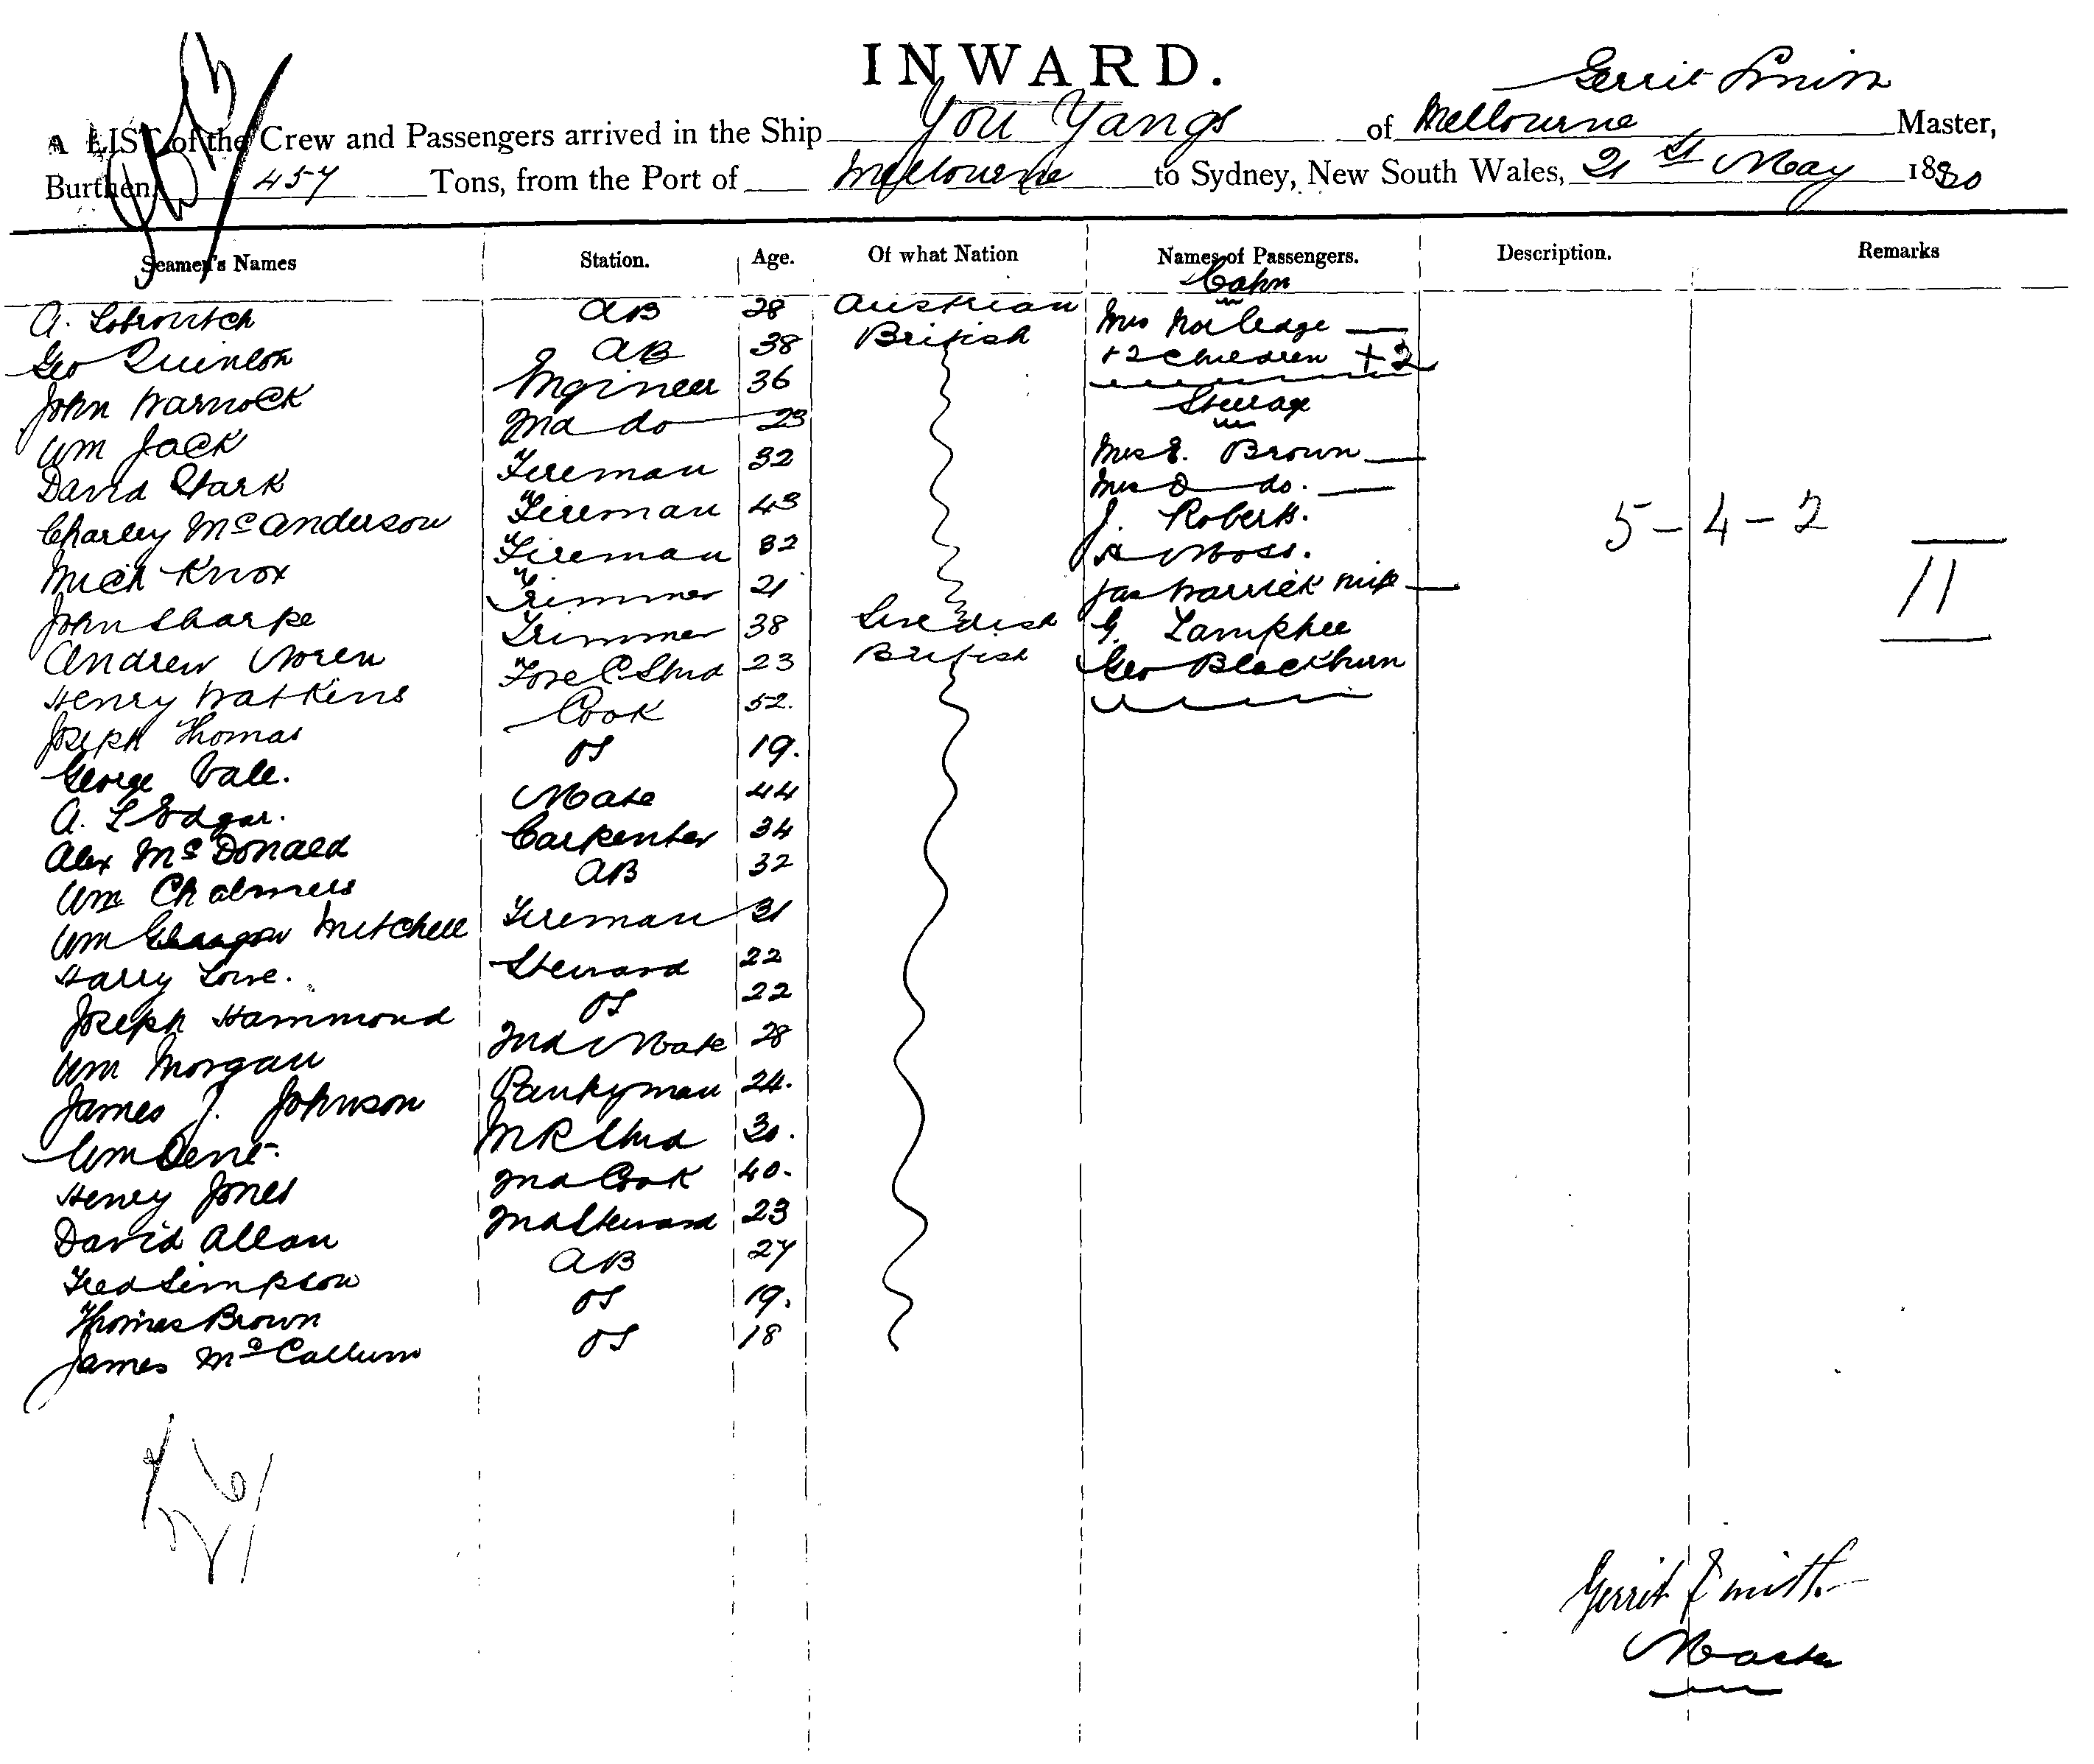 INWARD.
Gerrit Smith
A LIST of the Crew and Passengers arrived in the Ship You Yangs of Melbourne Master,
Burthen 457 Tons, from the Port of Melbourne to Sydney, New South Wales, 21st May 1880
Seamen's Names Station. Age. Of what Nation Names of Passengers. Description. Remarks
Cabn
A. AB 28 Austrian Mrs
Geo Quinlon AB 38 British +2 children +2
John Warnock Engineer 36
Steerage
Wm Jack 2nd do 23
David Stark Fireman 32 Mrs E. Brown
Charley McAnderson Fireman 43 Mrs D do.
Mich Knox Fireman 32 J. Roberts.
5-4-2
John Sharpe Trimmer 21 A Moss.
11
Andrew Noren Trimmer 38 Swedish Jas Warrick wife
Henry Watkins Fore C Stwd 23 British G. Lamphee
Joseph Thomas Cook 52. Geo Blackburn
George Vale. OS 19.
A. L Edgar. Mate 44
Alex McDonald Carpenter 34
Wm Chalmers AB 32
Wm Mitchell Fireman 31
Harry Lowe. Steward 22
Joseph Hammond OS 22
Wm Morgan 2nd Mate 28
James J. Johnson 24.
Wm Dent. Stwd 30.
Henry Jones 2nd Cook 40.
David Allan 2nd Steward 23
Fred Simpson AB 27
Thomas Brown OS 19.
James McCallum OS 18
26
Gerrit Smith
Master